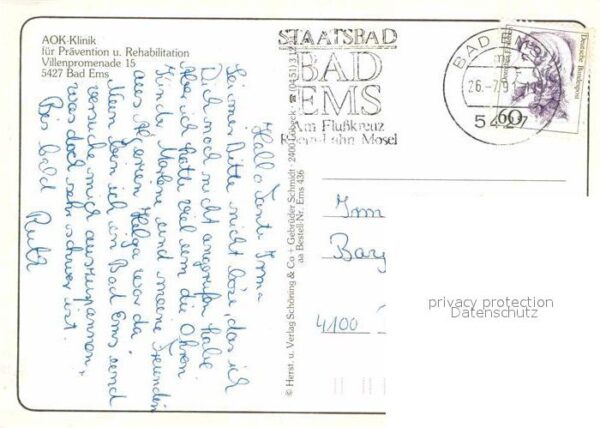 AOK-Klinik
für Prävention u. Rehabilitation
Villenpromenade 15
5427 Bad Ems
Hallo Tante Irma
Sei mir bitte nicht böse, das ich
Dich noch nicht angerufen habe
ich hatte viel um die Ohren
Kinder Marlene und meine Freundin
aus Algerien Helga war da.
Nun bin ich in Bad Ems und
versuche mich auszuspannen,
was doch sehr schwer ist.
Bis bald
Ruth
© Herst. u. Verlag Schöning & Co + Gebrüder Schmidt · 2400 Lübeck · ☎ (04 51) 3
aa Bestell-Nr. Ems 436
STAATSBAD
BAD
EMS
Am Flußkreuz
Rhein-Lahn Mosel
BAD EMS
26.-7.9
5427
Deutsche Bundespost
60
Irm
4100
privacy protection
Datenschutz